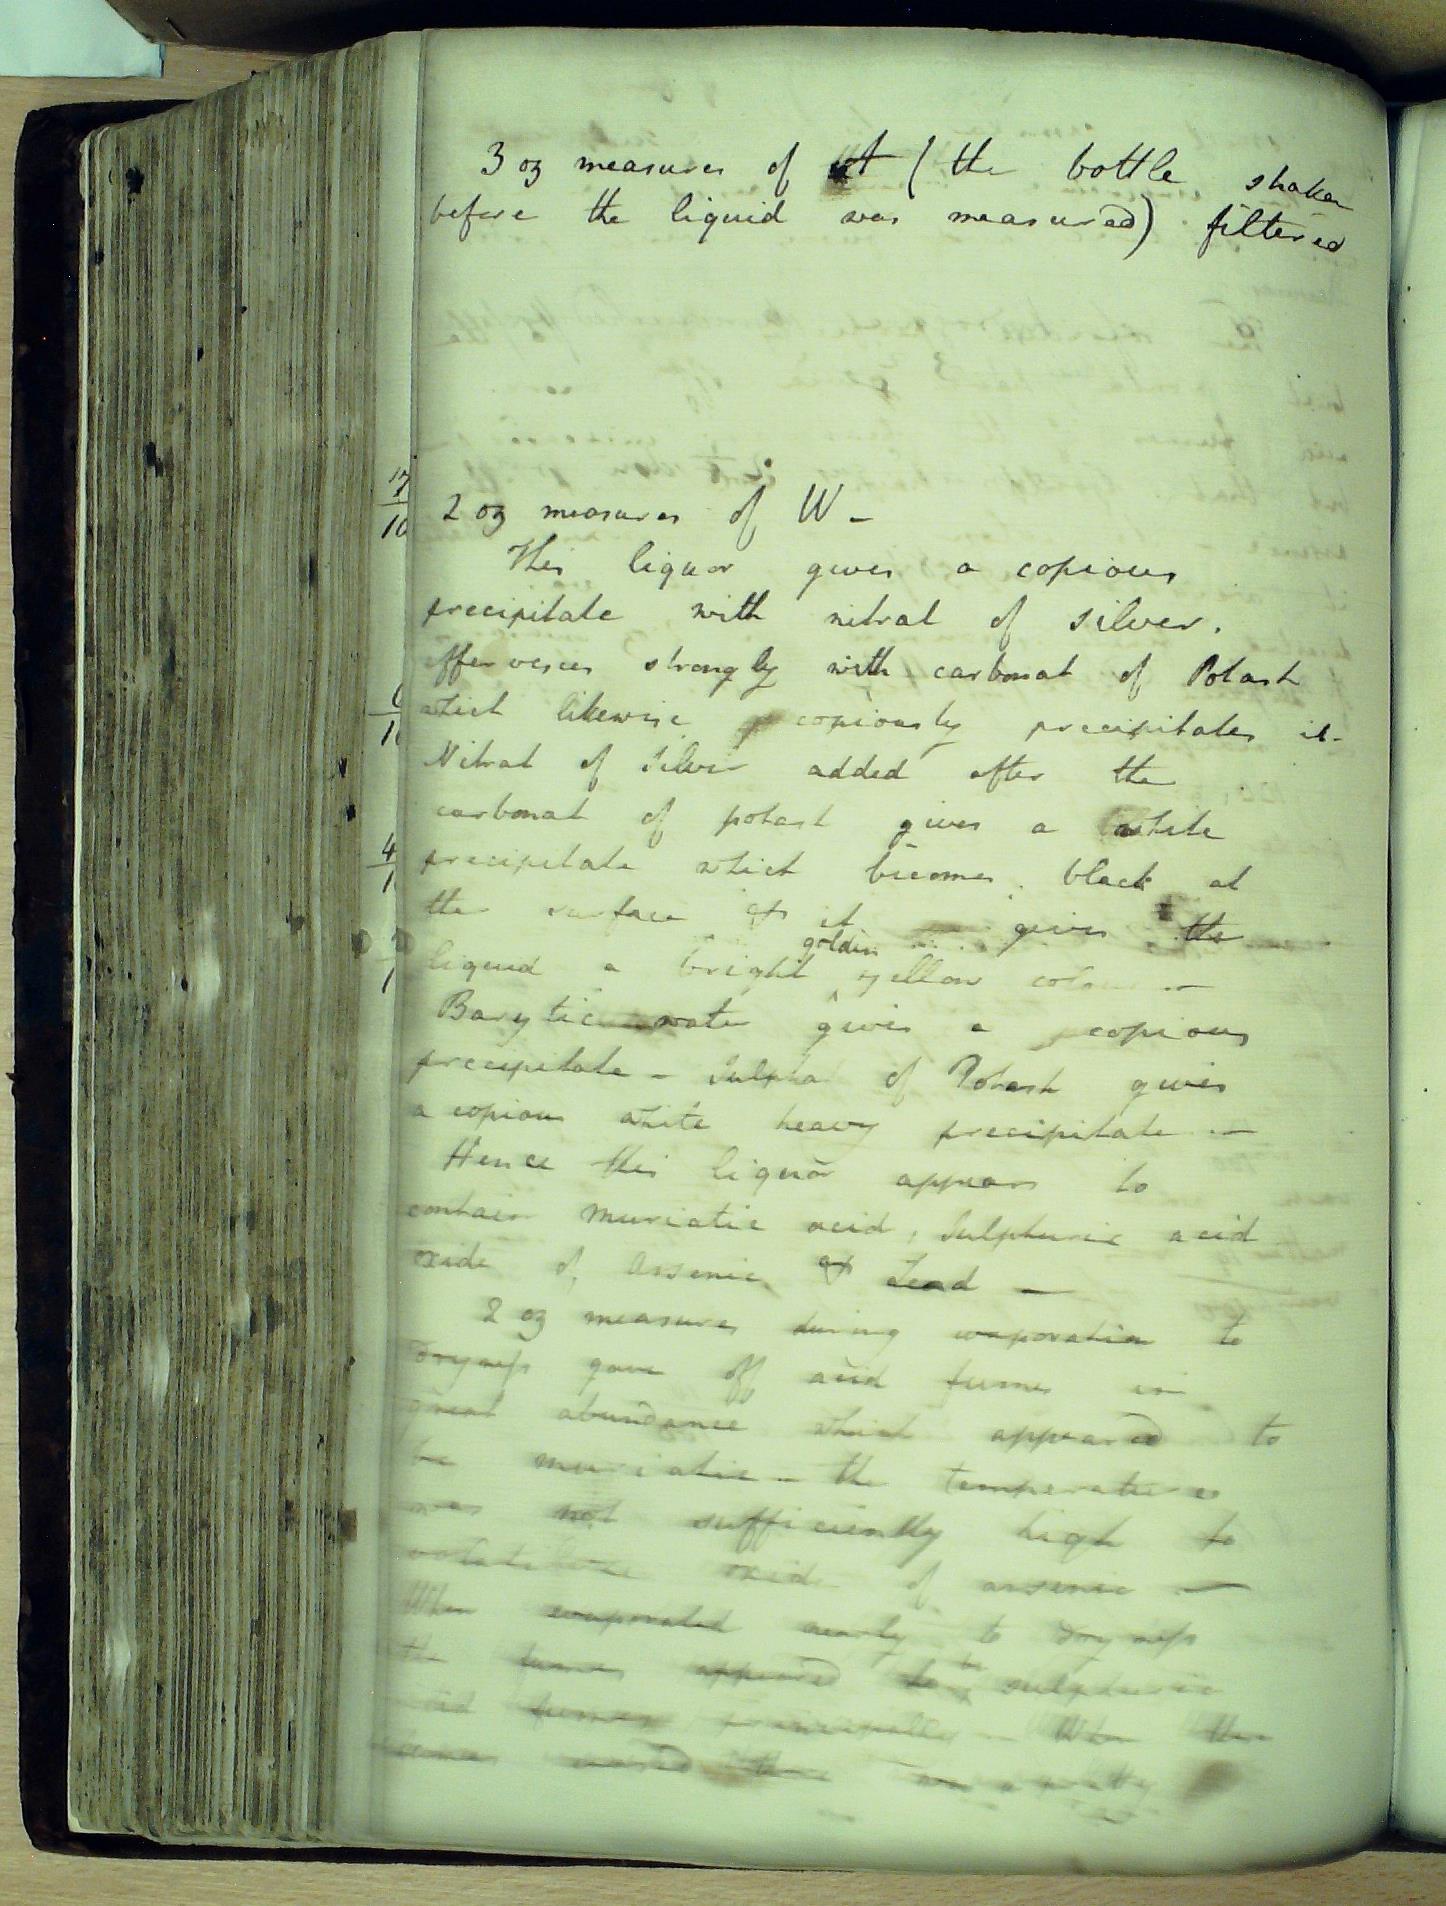 3 oz measures of it (the bottle shaken
before the liquid was measured) filtered
17
10
2 oz measures of W -
This liquor gives a copious
precipitate with nitrat of silver.
effervesces strongly with carbonat of Potash
which likewise copiously precipitates it -
Nitrat of Silver added after the
carbonat of potash gives a white
precipitate which becomes black at
4
the surface & it gives the
golden
liquid a bright yellow colour -
Barytic water gives a copious
precipitate - Sulphat of Potash gives
a copious white heavy precipitate -
Hence this liquor appears to
contain muriatic acid, Sulphuric acid
oxide of Arsenic & Lead -
2 oz measures during evaporation to
dryness gave off acid fumes in
great abundance which appeared to
be muriatic - the temperature
was not sufficiently high to
volatilize oxide of arsenic -
When evaporated nearly to dryness
the fumes appeared to be sulphuric
acid fumes principally - When the
fumes ceased